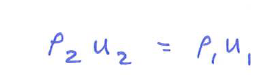 ρ₂ u₂ = ρ₁ u₁